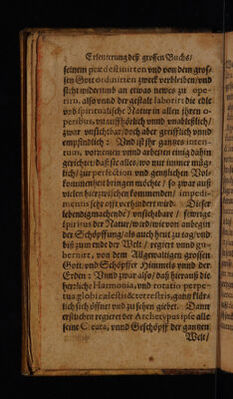 Erleuterung deß grossen Buchs/
seinem prædestinitten vnd von dem gros-
sen Gott ordinirten zweck verbleiben/vnd
nicht widerumb an etwas newes zu ope-
rirn. also vnnd der gestalt laborirt die edle
vnd spiritualische Natur in allen jhren o-
peribus, vnauffhörlich vnnd vnableßlich/
zwar vnsichtbar/doch aber greifflich vnnd
empfindlich: Vnd ist jhr gantzes inten-
tum, vornemen vnnd arbeiten einig dahin
gerichtet/daß sie alles/wo nur immer müg-
lich/zur perfection vnd gentzlichen Vol-
kommenheit bringen möchte/so zwar auß
vielen herzwischen kommenden/impedi-
mentis sehr offt verhindert wird: Dieser
lebendigmachende/vnsichtbare/fewrige
Spiritus der Natur/wird wie von anbegin
der Schöpffung/als auch heut zu tag/vnd
biß zum ende der Welt/regiert vnnd gu-
bernirt, von dem Allgewaltigen grossen
Gott/vnd Schöpffer Himmels vnnd der
Erden: Vnnd zwar also/daß hierauß die
herzliche Harmonia, vnd rotatio perpe-
tua globi cælestis & terrestris, gann klär-
lich sich öffnet vnd zu sehen giebet. Dann
erstlichen regieret der Archetypus ipse alle
seine Creata, vnnd Geschöpff der gantzen
Welt/